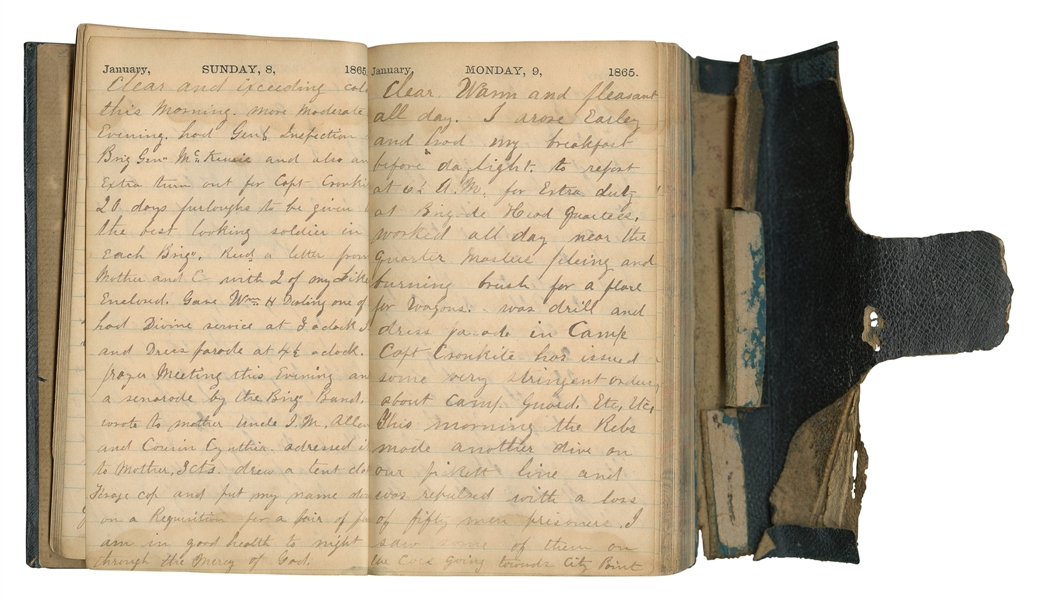 January, SUNDAY, 8, 1865
Clear and exceeding col
this Morning. more Moderate
Evening. had Genl Inspection
Brig Genl McKenzie and also an
Extra turn out for Capt Cronki
20 days furloughs to be given
the best looking soldier in
Each Brig. Recd a letter from
Mother and C with 2 of my
Enclosed. Gave Wm H one of
had Divine service at 3 oclock
and Dress parade at 4½ oclock.
prayer Meeting this Evening an
a senarode by the Brig Band.
wrote to mother Uncle J. M. Alle
and Cousin Cynthia. adressed it
to Mother, 3cts. drew a tent clo
Firage cap and put my name do
on a Requisition for a pair of pa
am in good health to night
through the Mercy of God.
January, MONDAY, 9, 1865.
Clear. Warm and pleasant
all day. I arose Earley
and had my breakfast
before daylight. to report
at A.M. for Extra duty
at Brigade Head Quarters.
worked all day near the
Quarter Masters and
burning brush for a place
for Wagons. was drill and
dress parade in Camp
Capt Cronkite has issued
some very stringent orders
about Camp Guard. Etc, Etc,
This morning the Rebs
made another dive on
our pikett line and
was repulsed with a loss
of fifty men prisoners. I
saw some of them on
the Cars going towards City Point